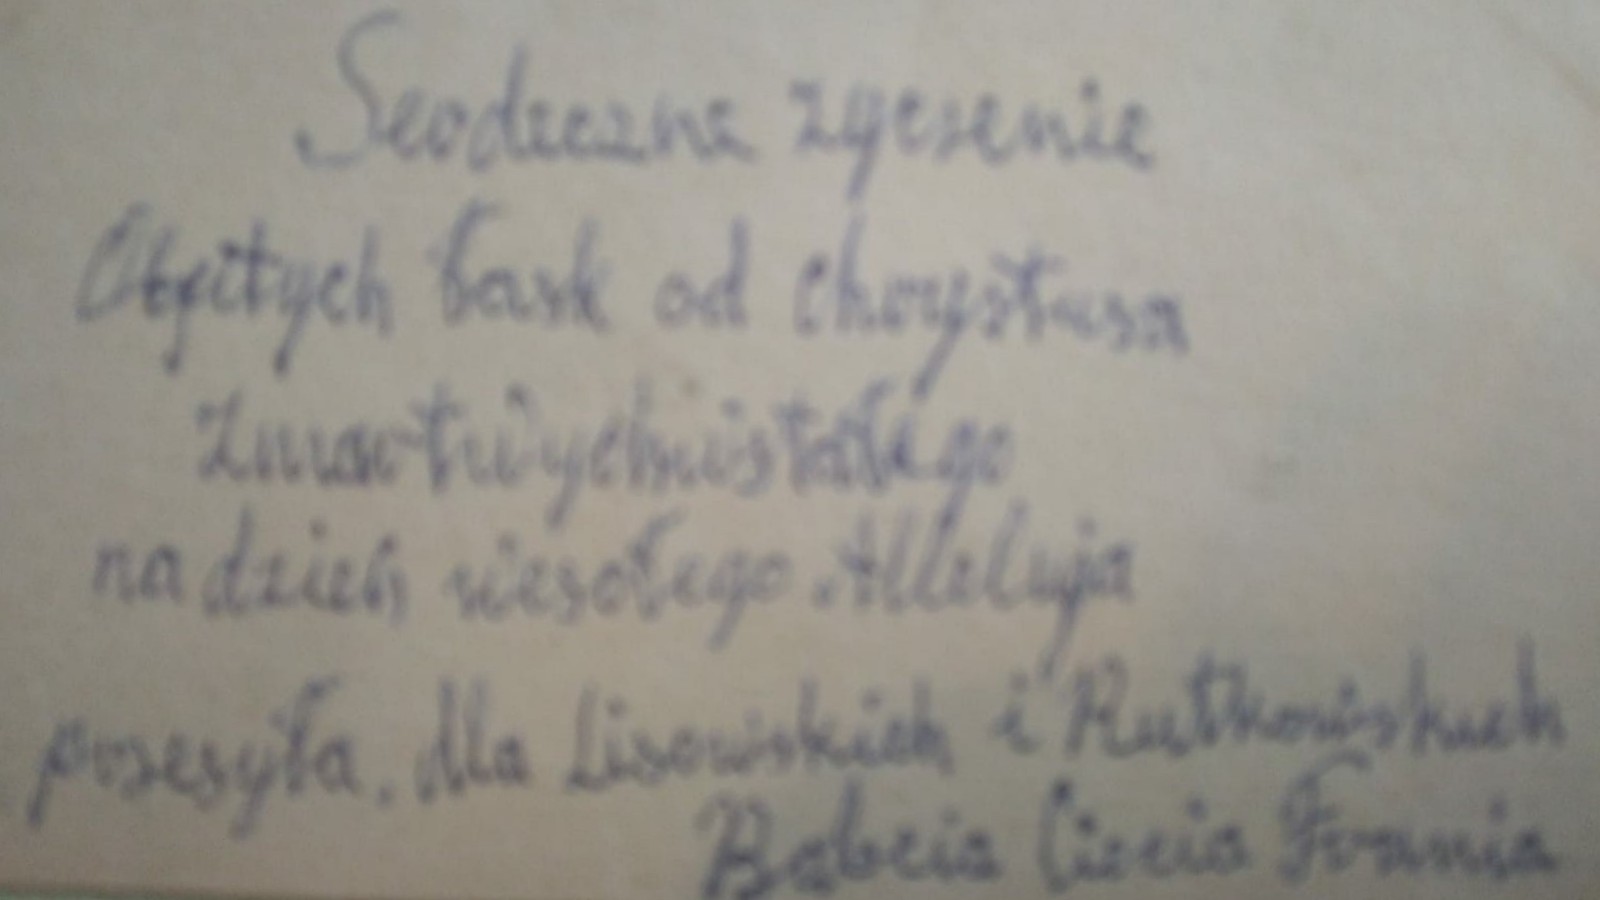 Serdeczne zyczenie
Obfitych Łask od Chrystusa
Zmartwychwstałego
na dzień wiesołego Alleluja
przesyła. Dla Lisowskich i Rutkowskich
Babcia Ciocia Frania